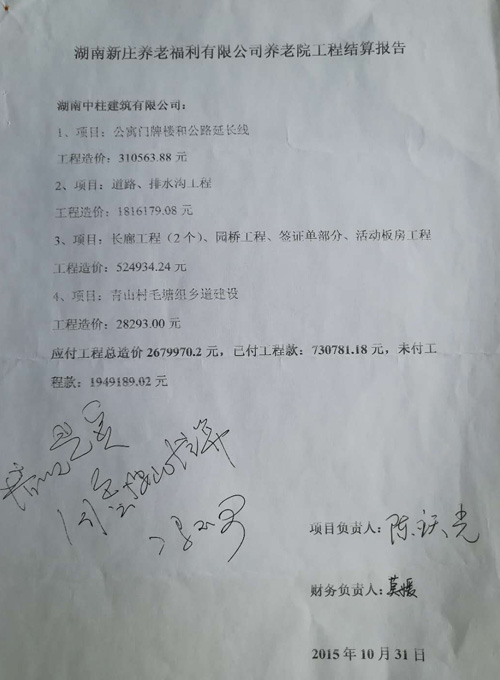 湖南新庄养老福利有限公司养老院工程结算报告
湖南中柱建筑有限公司：
1、项目：公寓门牌楼和公路延长线
工程造价：310563.88 元
2、项目：道路、排水沟工程
工程造价：1816179.08 元
3、项目：长廊工程（2个）、园桥工程、签证单部分、活动板房工程
工程造价：524934.24 元
4、项目：青山村毛塘组乡道建设
工程造价：28293.00 元
应付工程总造价 2679970.2 元，已付工程款：730781.18 元，未付工
程款：1949189.02 元
情况属实
同意按此结算
项目负责人：陈跃光
财务负责人：莫媛
2015 年 10 月 31 日